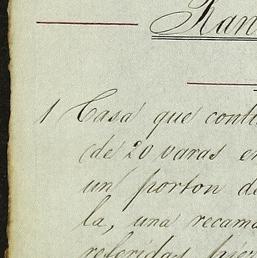 Ran
1 Casa que conti
de 20 varas en
un porton de
la, una recama
referidas pier